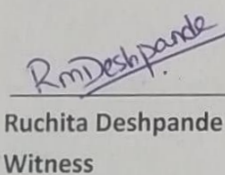 RmDeshpande
Ruchita Deshpande
Witness